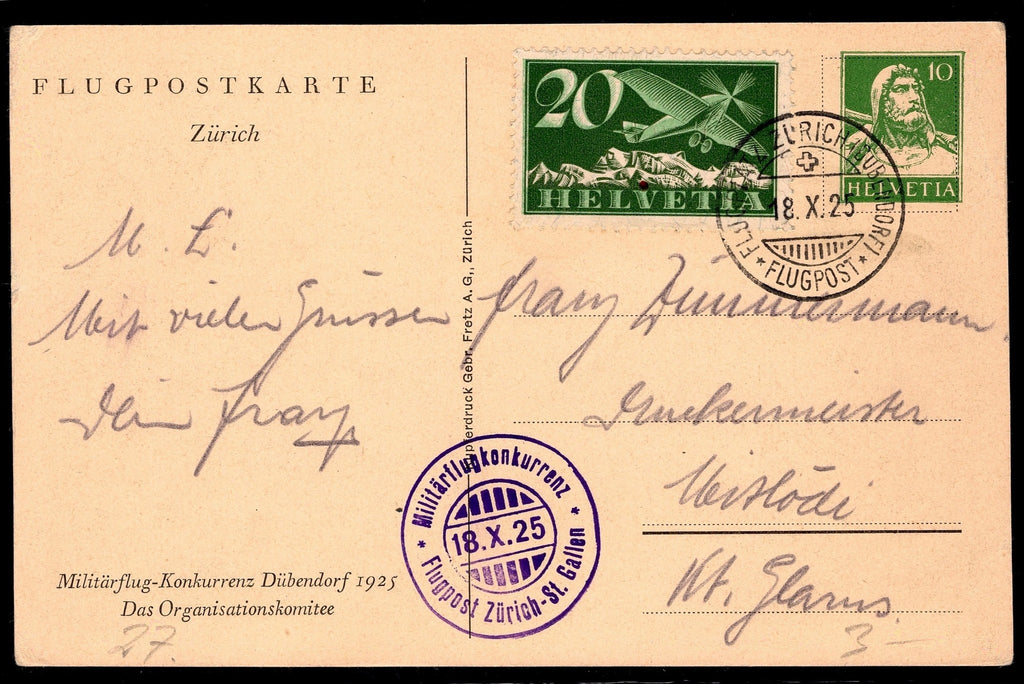 FLUGPOSTKARTE
Zürich
20
HELVETIA
10
HELVETIA
ZÜRICH (DÜBENDORF)
FLUGPLATZ
18.X.25
* FLUGPOST *
M. L.
Mit vielen Grüssen
Dein Franz
Kupferdruck Gebr. Fretz A. G., Zürich
Franz Zimmermann
Druckermeister
Mitlödi
Kt. Glarus
Militärflugkonkurrenz
18.X.25
* Flugpost Zürich-St. Gallen *
Militärflug-Konkurrenz Dübendorf 1925
Das Organisationskomitee
27.
3-